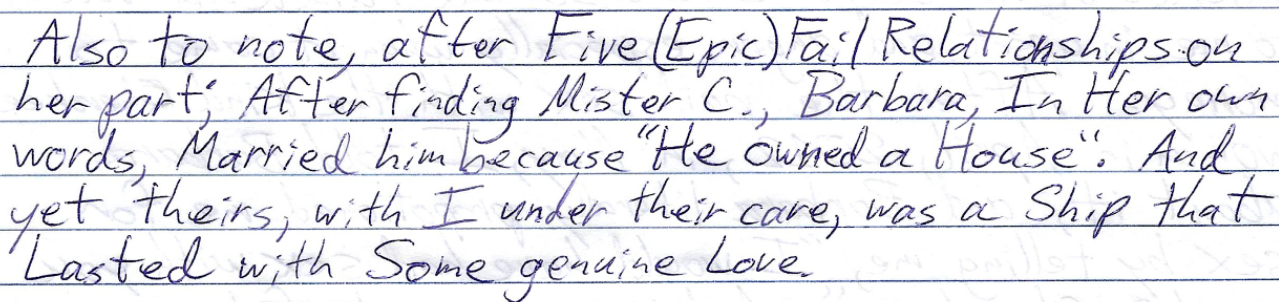 Also to note, after Five (Epic) Fail Relationships on
her part; After finding Mister C., Barbara, In Her own
words, Married him because "He owned a House". And
yet theirs, with I under their care, was a Ship that
Lasted with Some genuine Love.